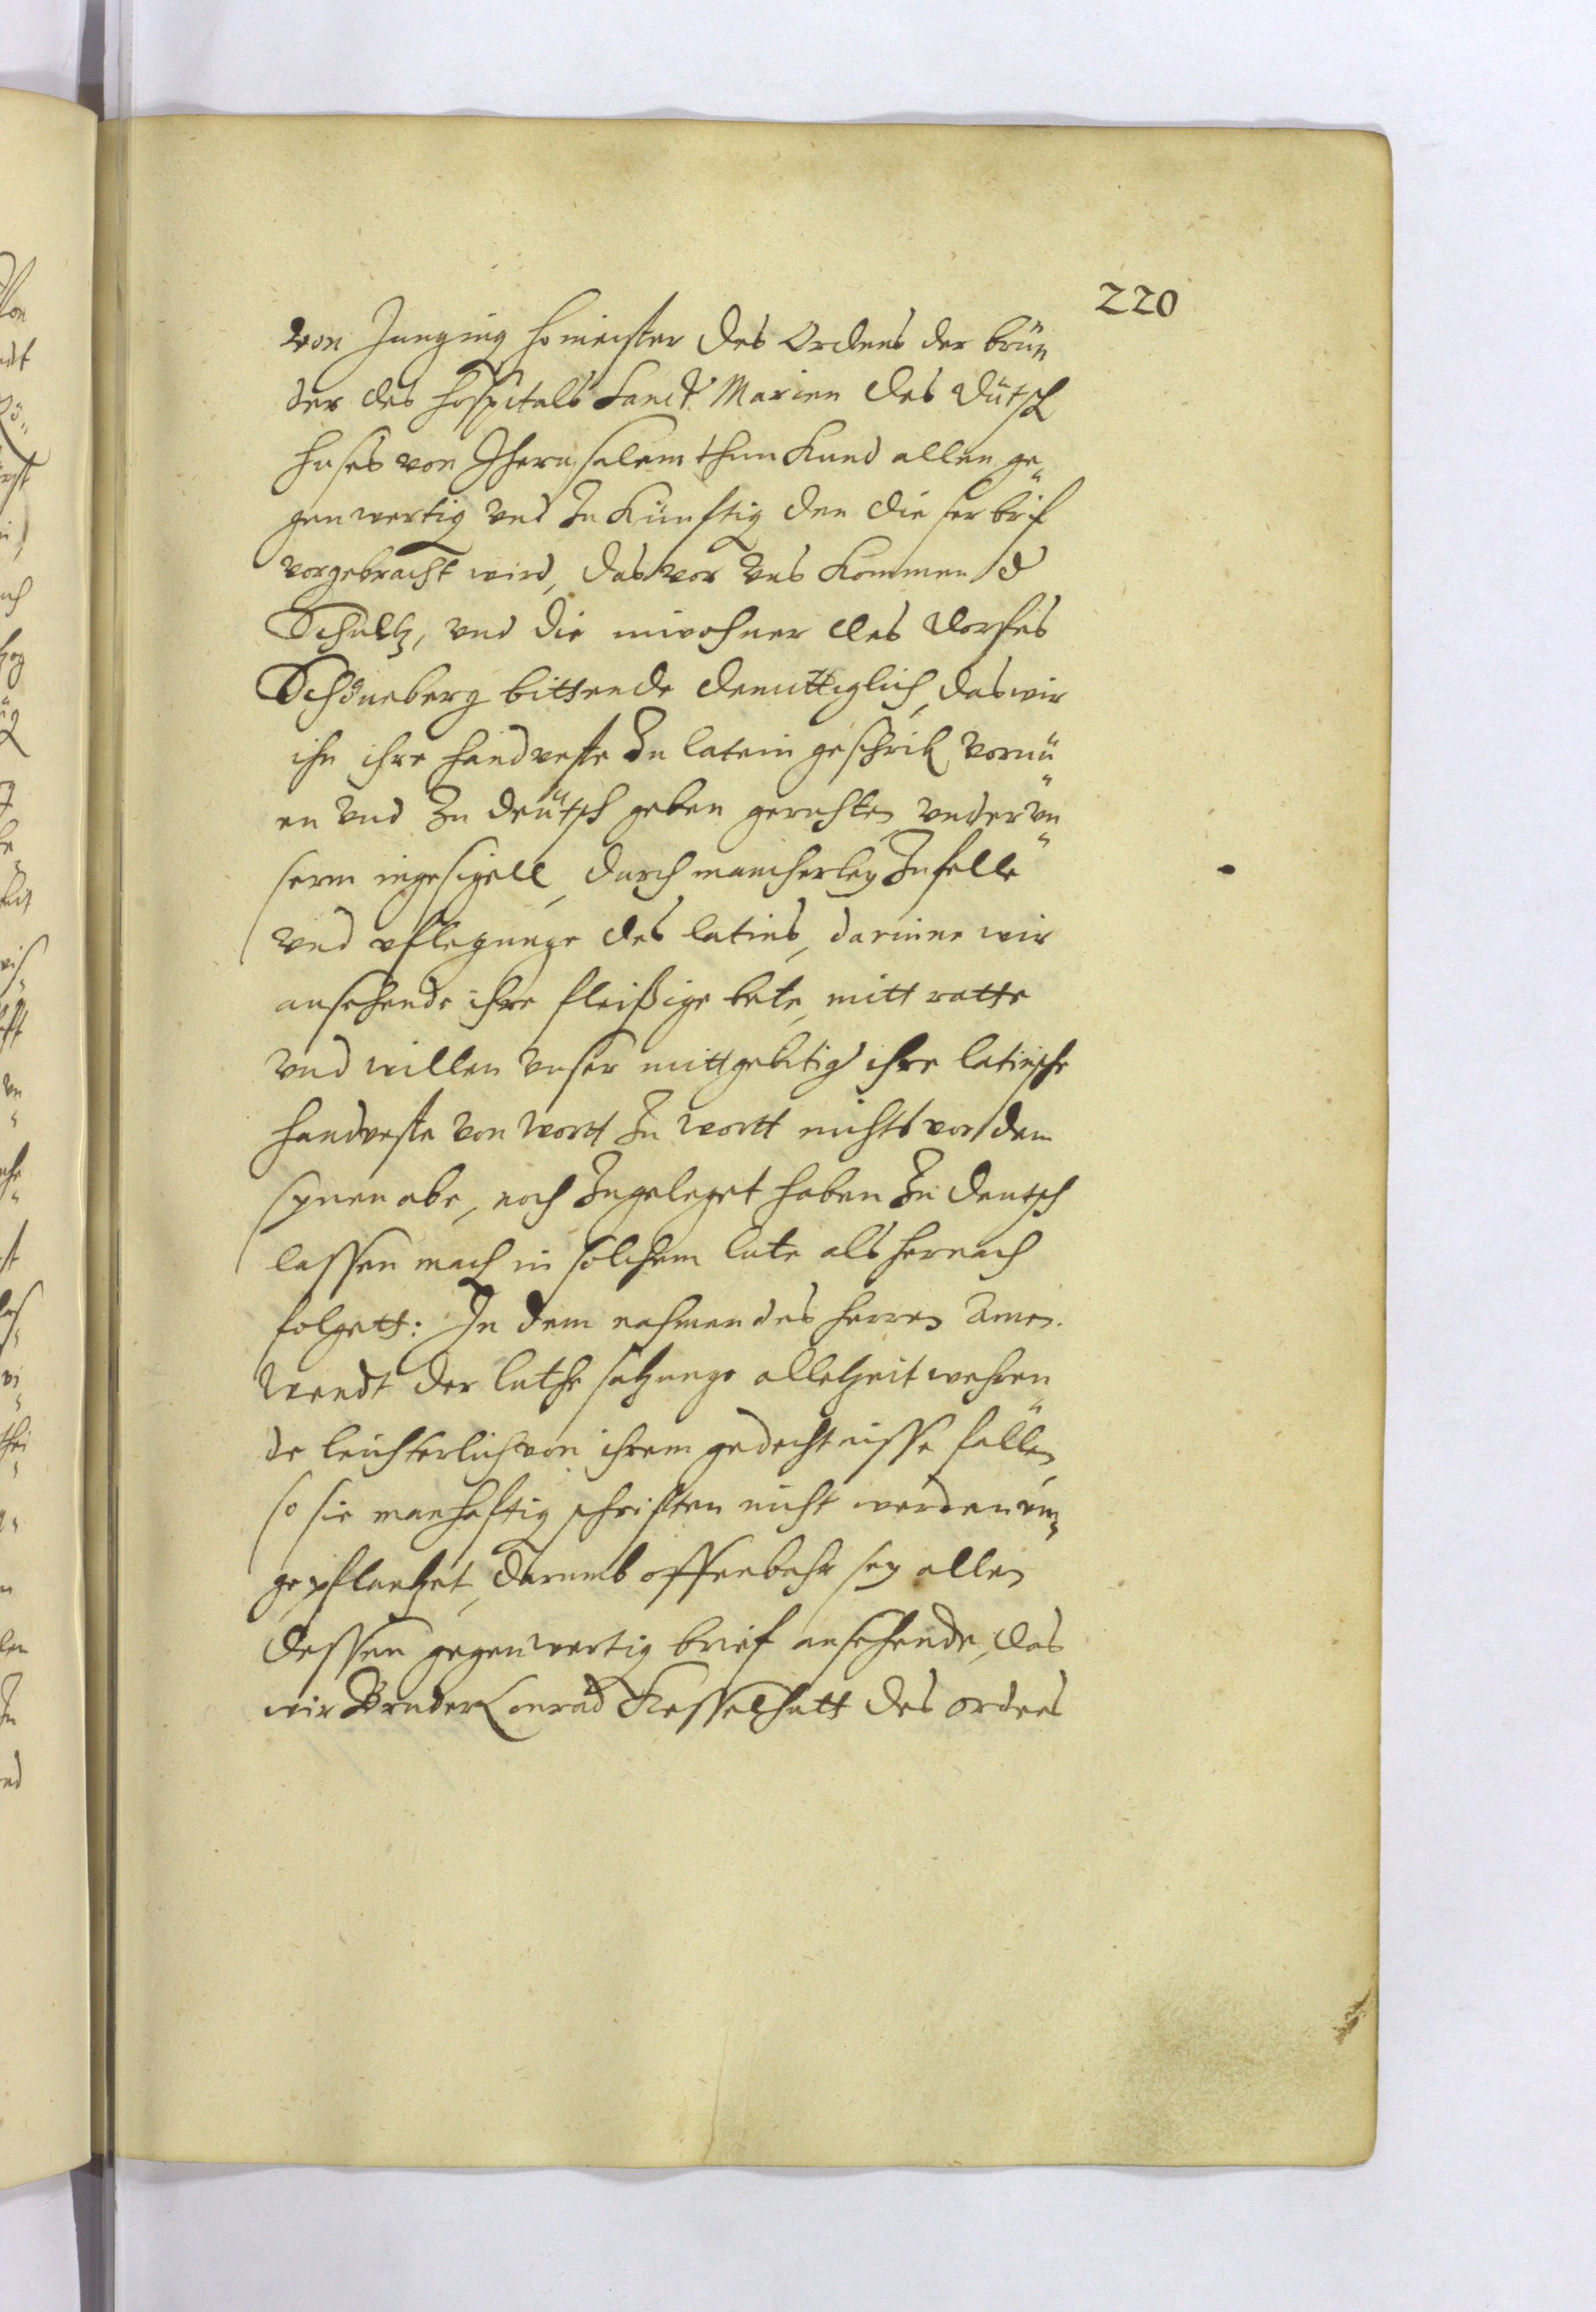 220
von Junging homeister des Ordens der brü„
der des Hospitals Sanct Marien des dütsch
huses von Jherusalem thun kund allen ge„
genwertig vnd zu künftig den die ser brif
vorgebracht wird, das vor vns kommen d
Schultz, vnd die inwohner des dorfes
Schöneberg bittende demuttiglich, das wir
ihn ihre handveste zu latein geschrib vornü„
en vnd zu deütsch geben geruhten vnder vn„
serm ingesigell, durch mancherley zufelle
vnd pflegunge des latins, darinne wir
ansehende ihre fleißige bete, mitt ratte
vnd willen vnser mittgebitig ihre latinsche
handveste von wortt zu wortt nichts von dem
synen abe, noch zugeleget haben zu deutsch
lassen mach in solchem lute als hernach
folgett: In dem nahmen des herren Amen.
Wendt der luthe satzunge alletzeit wehren„
de leichterlich von ihrem gedechtnisse fallen,
so sie manhaftig schriften nicht werden in„
gepflantzet, darumb offenbahr sey allen
dessen gegenwertig brief ansehende, das
wir Bruder Conrad Kesselhutt des ordens